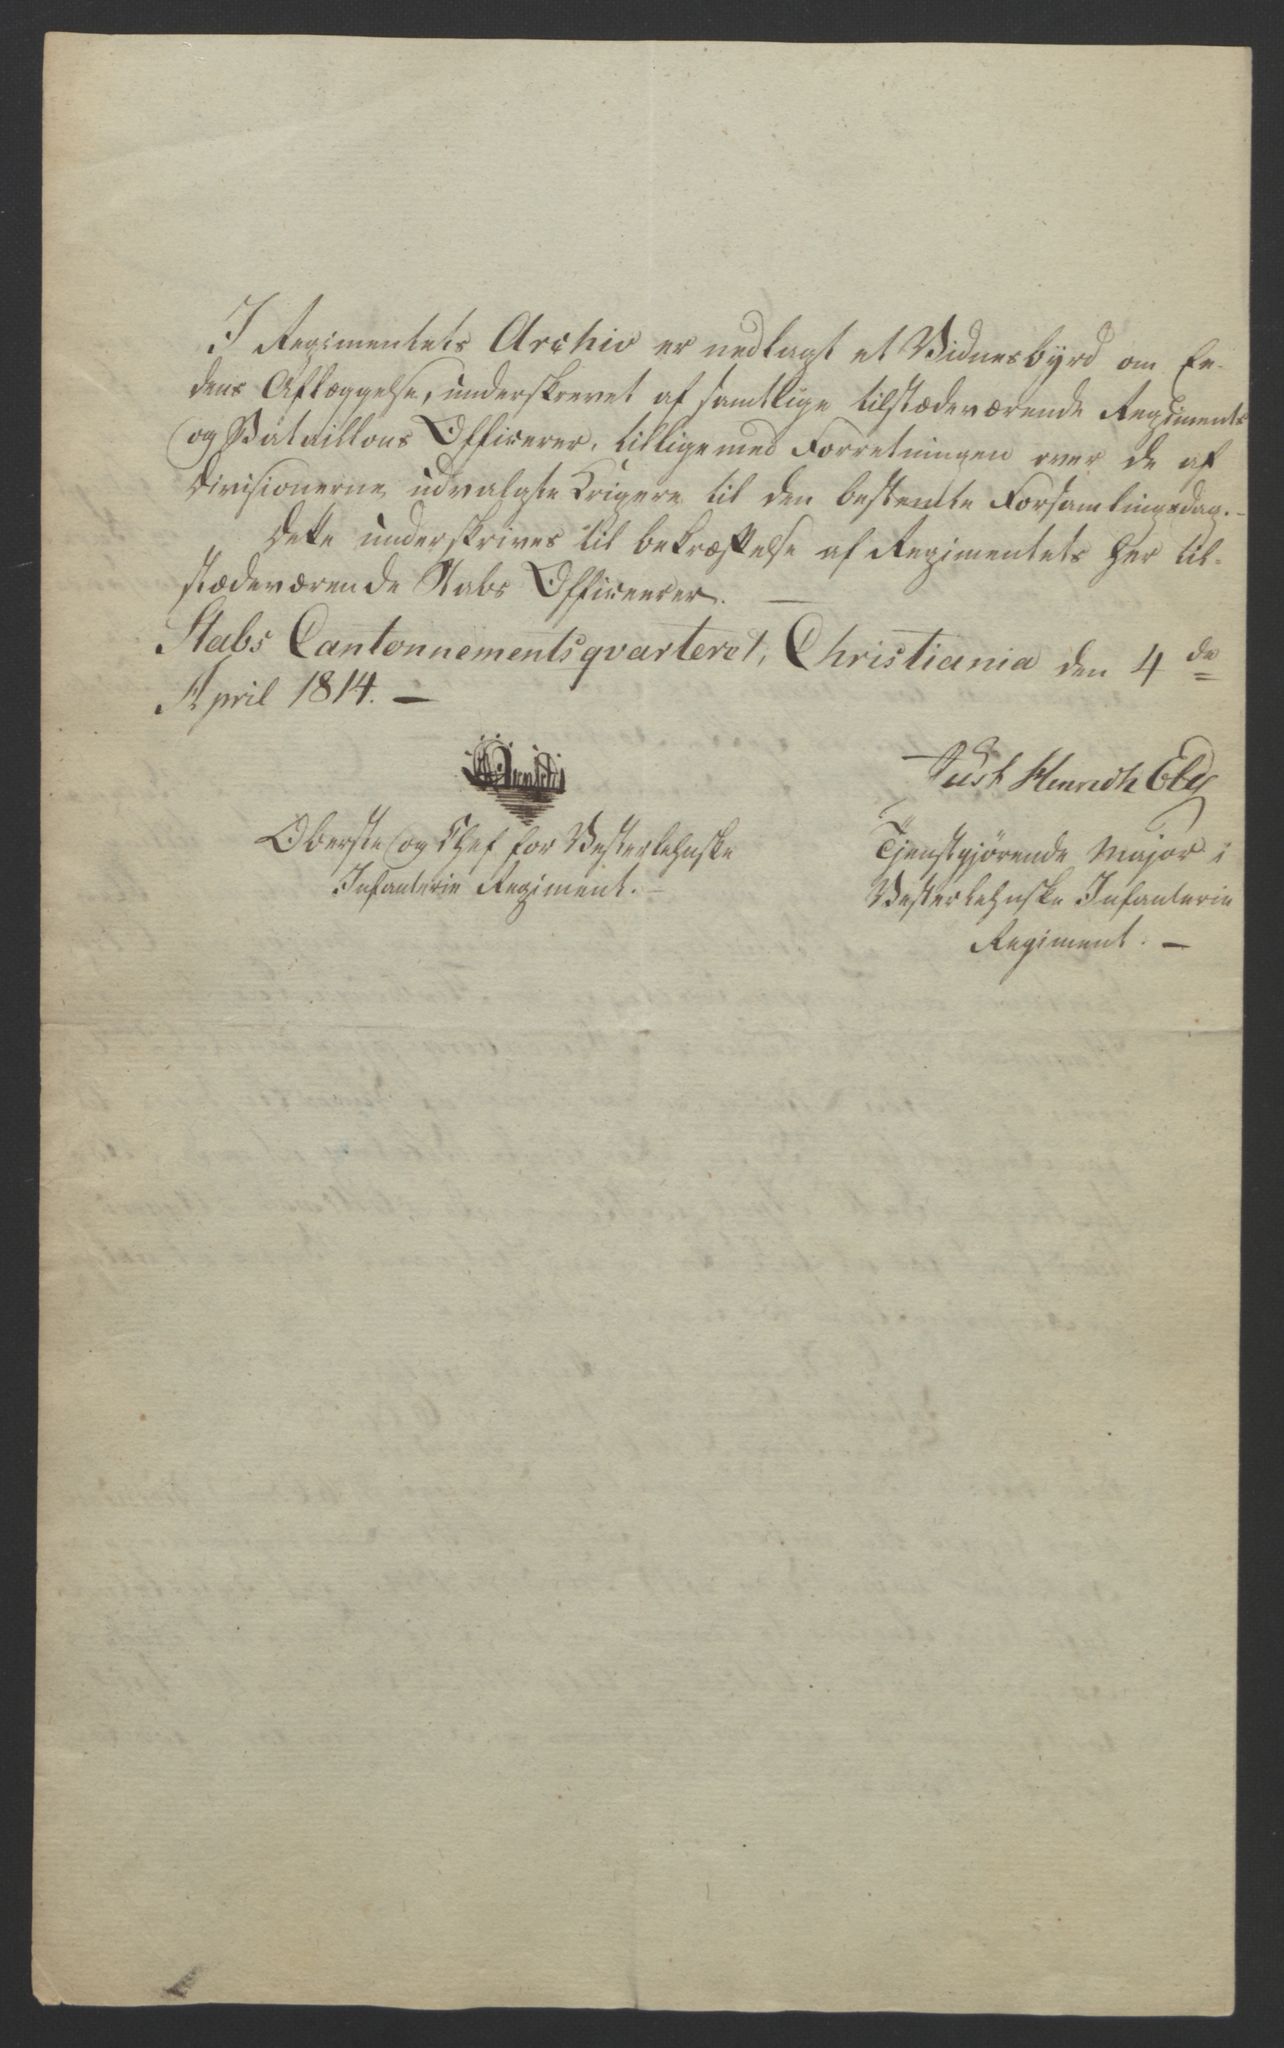 I Regimentets Archiv er nedlagt et Vidnesbyrd om Ee-
dens Aflæggelse, underskrevet af samtlige tilstædeværende Regiments
og Bataillons Officerer, tillige med Forretningen over de af
Divisionerne udvalgte Krigere til den bestemte Forsamlingsdag. -
Dette underskrives til bekræftelse af Regimentets her til-
stædeværende Stabs Officerer. —
Stabs Cantonnementsqvarteret, Christiania den 4 de
April 1814. —
Arentz
Just Henrich Ely
Oberste og Chef for Vesterlehnske
Infanterie Regiment. -
Tjenstgjørende Major i
Vesterlehnske Infanterie
Regiment. —